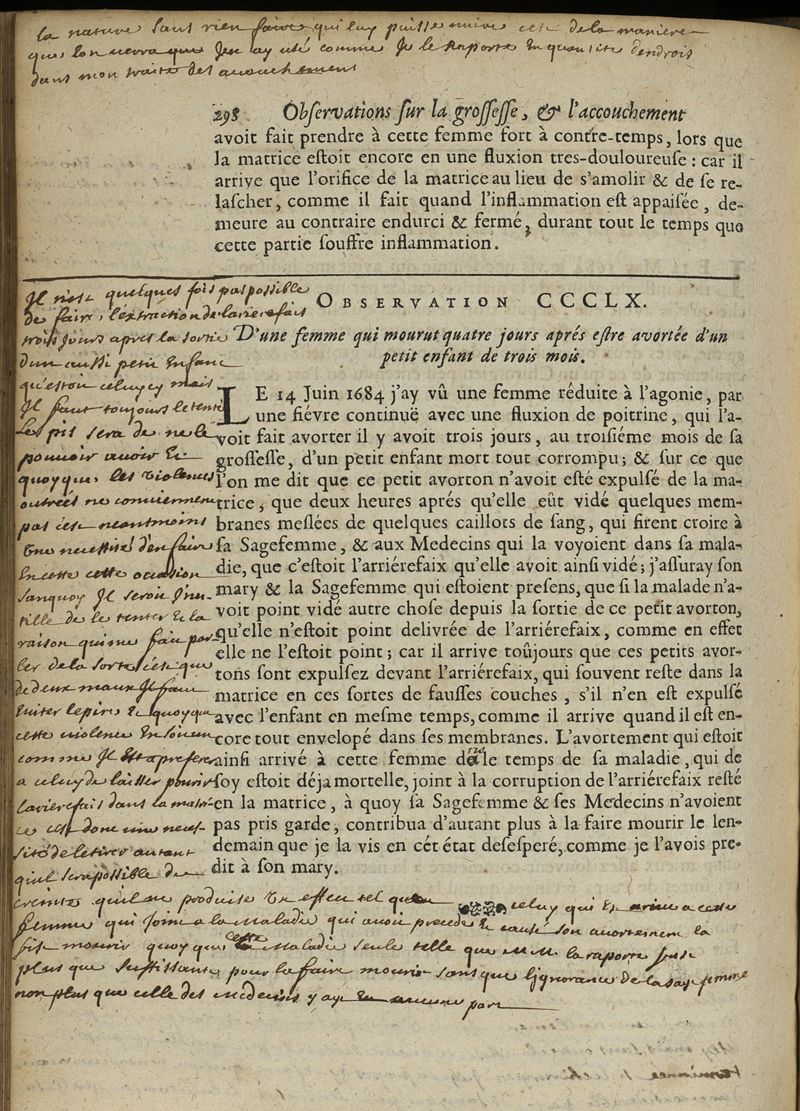 la nature sans rien faire qui luy puisse nuire c'est de la maniere
que lon verra que j'en ay usé comme je le raporte en quantité dendrois
dans mon traité des acouchemens
298 Obſervations ſur la groſſeſſe, & l'accouchement
avoit fait prendre à cette femme fort à contre-temps, lors que
la matrice eſtoit encore en une fluxion tres-douloureuſe : car il
arrive que l'orifice de la matrice au lieu de s'amolir & de ſe re-
laſcher, comme il fait quand l'inflammation eſt appaiſée, de-
meure au contraire endurci & fermé, durant tout le temps que
cette partie ſouffre inflammation.
OBSERVATION CCCLX.
D'une femme qui mourut quatre jours aprés eſtre avortée d'un
petit enfant de trois mois.
LE 14 Juin 1684 j'ay vû une femme réduite à l'agonie, par
une fiévre continuë avec une fluxion de poitrine, qui l'a-
voit fait avorter il y avoit trois jours, au troiſiéme mois de ſa
groſſeſſe, d'un petit enfant mort tout corrompu ; & ſur ce que
l'on me dit que ce petit avorton n'avoit eſté expulſé de la ma-
trice, que deux heures aprés qu'elle eût vidé quelques mem-
branes meſlées de quelques caillots de ſang, qui firent croire à
ſa Sagefemme, & aux Medecins qui la voyoient dans ſa mala-
die, que c'eſtoit l'arriérefaix qu'elle avoit ainſi vidé ; j'aſſuray ſon
mary & la Sagefemme qui eſtoient preſens, que ſi la malade n'a-
voit point vidé autre choſe depuis la ſortie de ce petit avorton,
qu'elle n'eſtoit point delivrée de l'arriérefaix, comme en effet
elle ne l'eſtoit point ; car il arrive toûjours que ces petits avor-
tons ſont expulſez devant l'arriérefaix, qui ſouvent reſte dans la
matrice en ces ſortes de fauſſes couches, s'il n'en eſt expulſé
avec l'enfant en meſme temps, comme il arrive quand il eſt en-
core tout envelopé dans ſes membranes. L'avortement qui eſtoit
ainſi arrivé à cette femme le temps de ſa maladie, qui de
ſoy eſtoit déja mortelle, joint à la corruption de l'arriérefaix reſté
en la matrice, à quoy ſa Sagefemme & ſes Medecins n'avoient
pas pris garde, contribua d'autant plus à la faire mourir le len-
demain que je la vis en cét état deſeſperé, comme je l'avois pre-
dit à ſon mary.
Il n'est quelques fois pas possible
de faire l'extraction de larierefait
trois jours apres la sortie
dun aussi petit enfant
qu'estoit celuy cy mais
Il faut toujours le tenter
Les pis sera de ne le
pouvoir avoir &
quoyque les violences
outrées ne conviennent
pas c'est neantmoins
une necessité d'en faire
en cette ocasion
sanquoy Il seroit Inu
tille de le tenter & la
raison qui me fait par
ler de la sorte c'est que
de deux maux Il faut
eviter le pire & quoyque
cette violence en soit un
comme Il est a preferer
a celuy de laisser pourir
larierefait dans la matri
ce c'est donc une neces
sité de le tirer autant
quil sera possible de
creinte quil ne produise un effet tel que celuy qui est arivé a cette
femme qui joint a la maladie qui avoit precedé & causé son avortement la
fit mourir quoy que cette maladie seule telle que M M la raporte fust
plus que suffissante pour la faire mourir sans que l'ignorance de la sage femme
non plus que celle des medecins y aye en aucune part